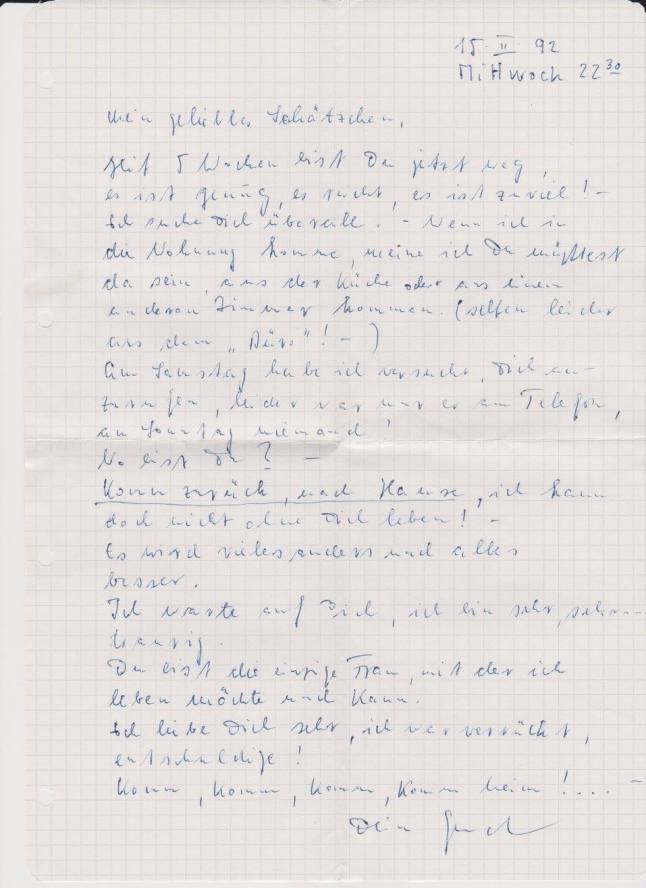 15. II 92
Mittwoch 22 30
Mein geliebtes Schätzchen,
Seit 5 Wochen bist Du jetzt weg,
es ist genug, es reicht, es ist zuviel! –
Ich suche Dich überall. – Wenn ich in
die Wohnung komme, meine ich Du müsstest
da sein, aus der Küche oder aus einem
anderen Zimmer kommen. (selten leider
aus dem „Büro“! – )
Am Samstag habe ich versucht, Dich an-
zurufen, leider war nur er am Telefon,
am Sonntag niemand!
Wo bist Du? –
Komm zurück, nach Hause, ich kann
doch nicht ohne Dich leben! –
Es wird vieles anders und alles
besser.
Ich warte auf Dich, ich bin sehr, sehr
traurig.
Du bist die einzige Frau, mit der ich
leben möchte und kann.
Ich liebe Dich sehr, ich war verrückt,
entschuldige!
Komm, komm, komm, komm heim!.... –
Dein